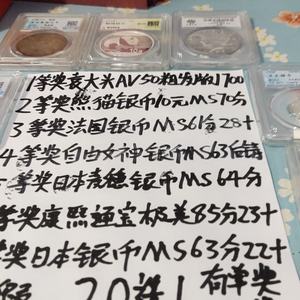 1等奖袁大头AV50粗发版1700
2等奖熊猫银币10元MS70分
3等奖法国银币MS61分28+
4等奖自由女神银币MS63后铸
等奖日本麦穗银币MS64分
等奖康熙通宝极美85分23+
等奖日本银币MS63分22+
20 有单奖